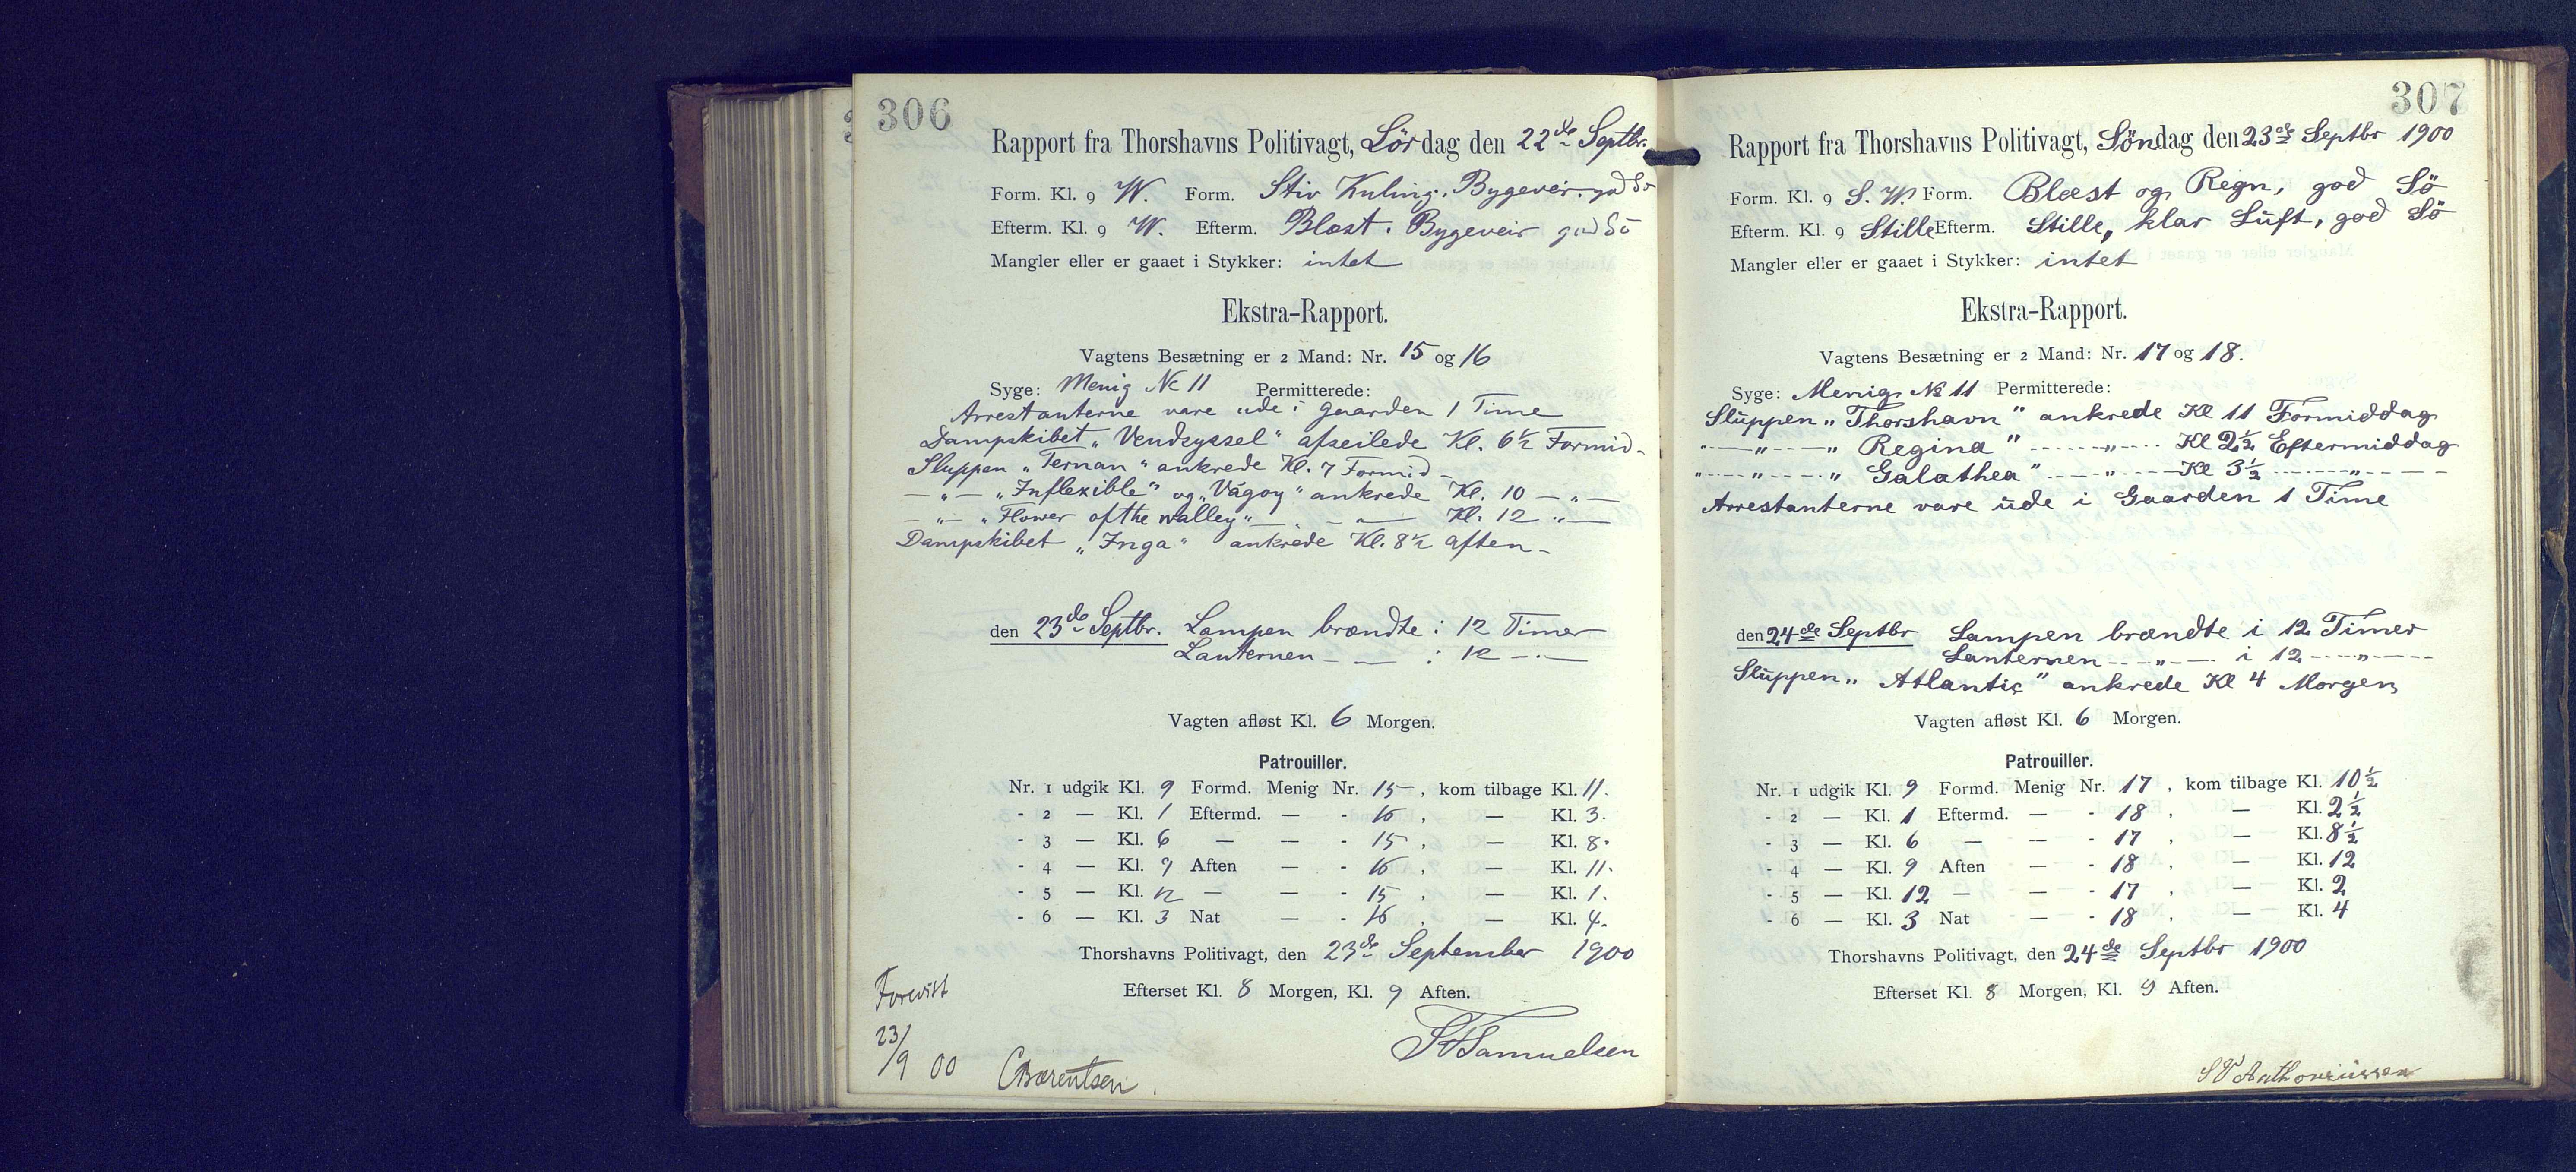 306
Rapport fra Thorshavns Politivagt, Lördag den 22de Septbr.
Form. Kl. 9 W. Form. Stiv Kuling. Bygeveir. god Sö
Efterm. Kl. 9 W. Efterm. Blæst. Bygeveir god Sö
Mangler eller er gaaet i Stykker: intet
Ekstra-Rapport.
Vagtens Besætning er 2 Mand: Nr. 15 og 16
Syge: Menig No 11 Permitterede:
Arrestanterne vare ude i gaarden 1 Time
Dampskibet „Vendsyssel“ afseilede Kl. 6½ Formid-
Sluppen „Ternan“ ankrede Kl. 7 Formid-
—„— „Inflexible“ og „Vágoy“ ankrede Kl. 10 —„—
—„— „Flower of the walley“ — — Kl. 12 „—
Dampskibet „Inga“ ankrede Kl. 8½ aften-
den 23de Septbr. Lampen brændte i 12 Timer
Lanternen - — i 12 —„—
Vagten afløst Kl. 6 Morgen.
Patrouiller.
Nr. 1 udgik Kl. 9 Formd. Menig Nr. 15, kom tilbage Kl. 11.
- 2 — Kl. 1 Eftermd. — - 16, — Kl. 3.
- 3 — Kl. 6 — — - 15, — Kl. 8.
- 4 — Kl. 9 Aften — - 16, — Kl. 11.
- 5 — Kl. 12 — — - 15, — Kl. 1.
- 6 — Kl. 3 Nat — - 16, — Kl. 4.
Thorshavns Politivagt, den 23de September 1900
Efterset Kl. 8 Morgen, Kl. 9 Aften.
Forevist
23/9 00
CBærentsen.
Samuelsen
307
Rapport fra Thorshavns Politivagt, Söndag den 23de Septbr 1900
Form. Kl. 9 S.W. Form. Blæst og Regn, god Sö
Efterm. Kl. 9 Stille Efterm. Stille, klar Luft, god Sö
Mangler eller er gaaet i Stykker: intet
Ekstra-Rapport.
Vagtens Besætning er 2 Mand: Nr. 17 og 18.
Syge: Menig No 11 Permitterede:
Sluppen „Thorshavn“ ankrede Kl 11 Formiddag
—„— „Regina“ —„— Kl 2½ Eftermiddag
—„— „Galathea“ —„— Kl 3½ —„—
Arrestanterne vare ude i Gaarden 1 Time
den 24de Septbr Lampen brændte i 12 Timer
Lanternen —„— i 12 —„—
Sluppen „Atlantic“ ankrede Kl 4 Morgen
Vagten afløst Kl. 6 Morgen.
Patrouiller.
Nr. 1 udgik Kl. 9 Formd. Menig Nr. 17, kom tilbage Kl. 10½
- 2 — Kl. 1 Eftermd. — - 18, — Kl. 2½
- 3 — Kl. 6 — — - 17, — Kl. 8½
- 4 — Kl. 9 Aften — - 18, — Kl. 12
- 5 — Kl. 12 — — - 17, — Kl. 2
- 6 — Kl. 3 Nat — - 18, — Kl. 4
Thorshavns Politivagt, den 24de Septbr 1900
Efterset Kl. 8 Morgen, Kl. 9 Aften.